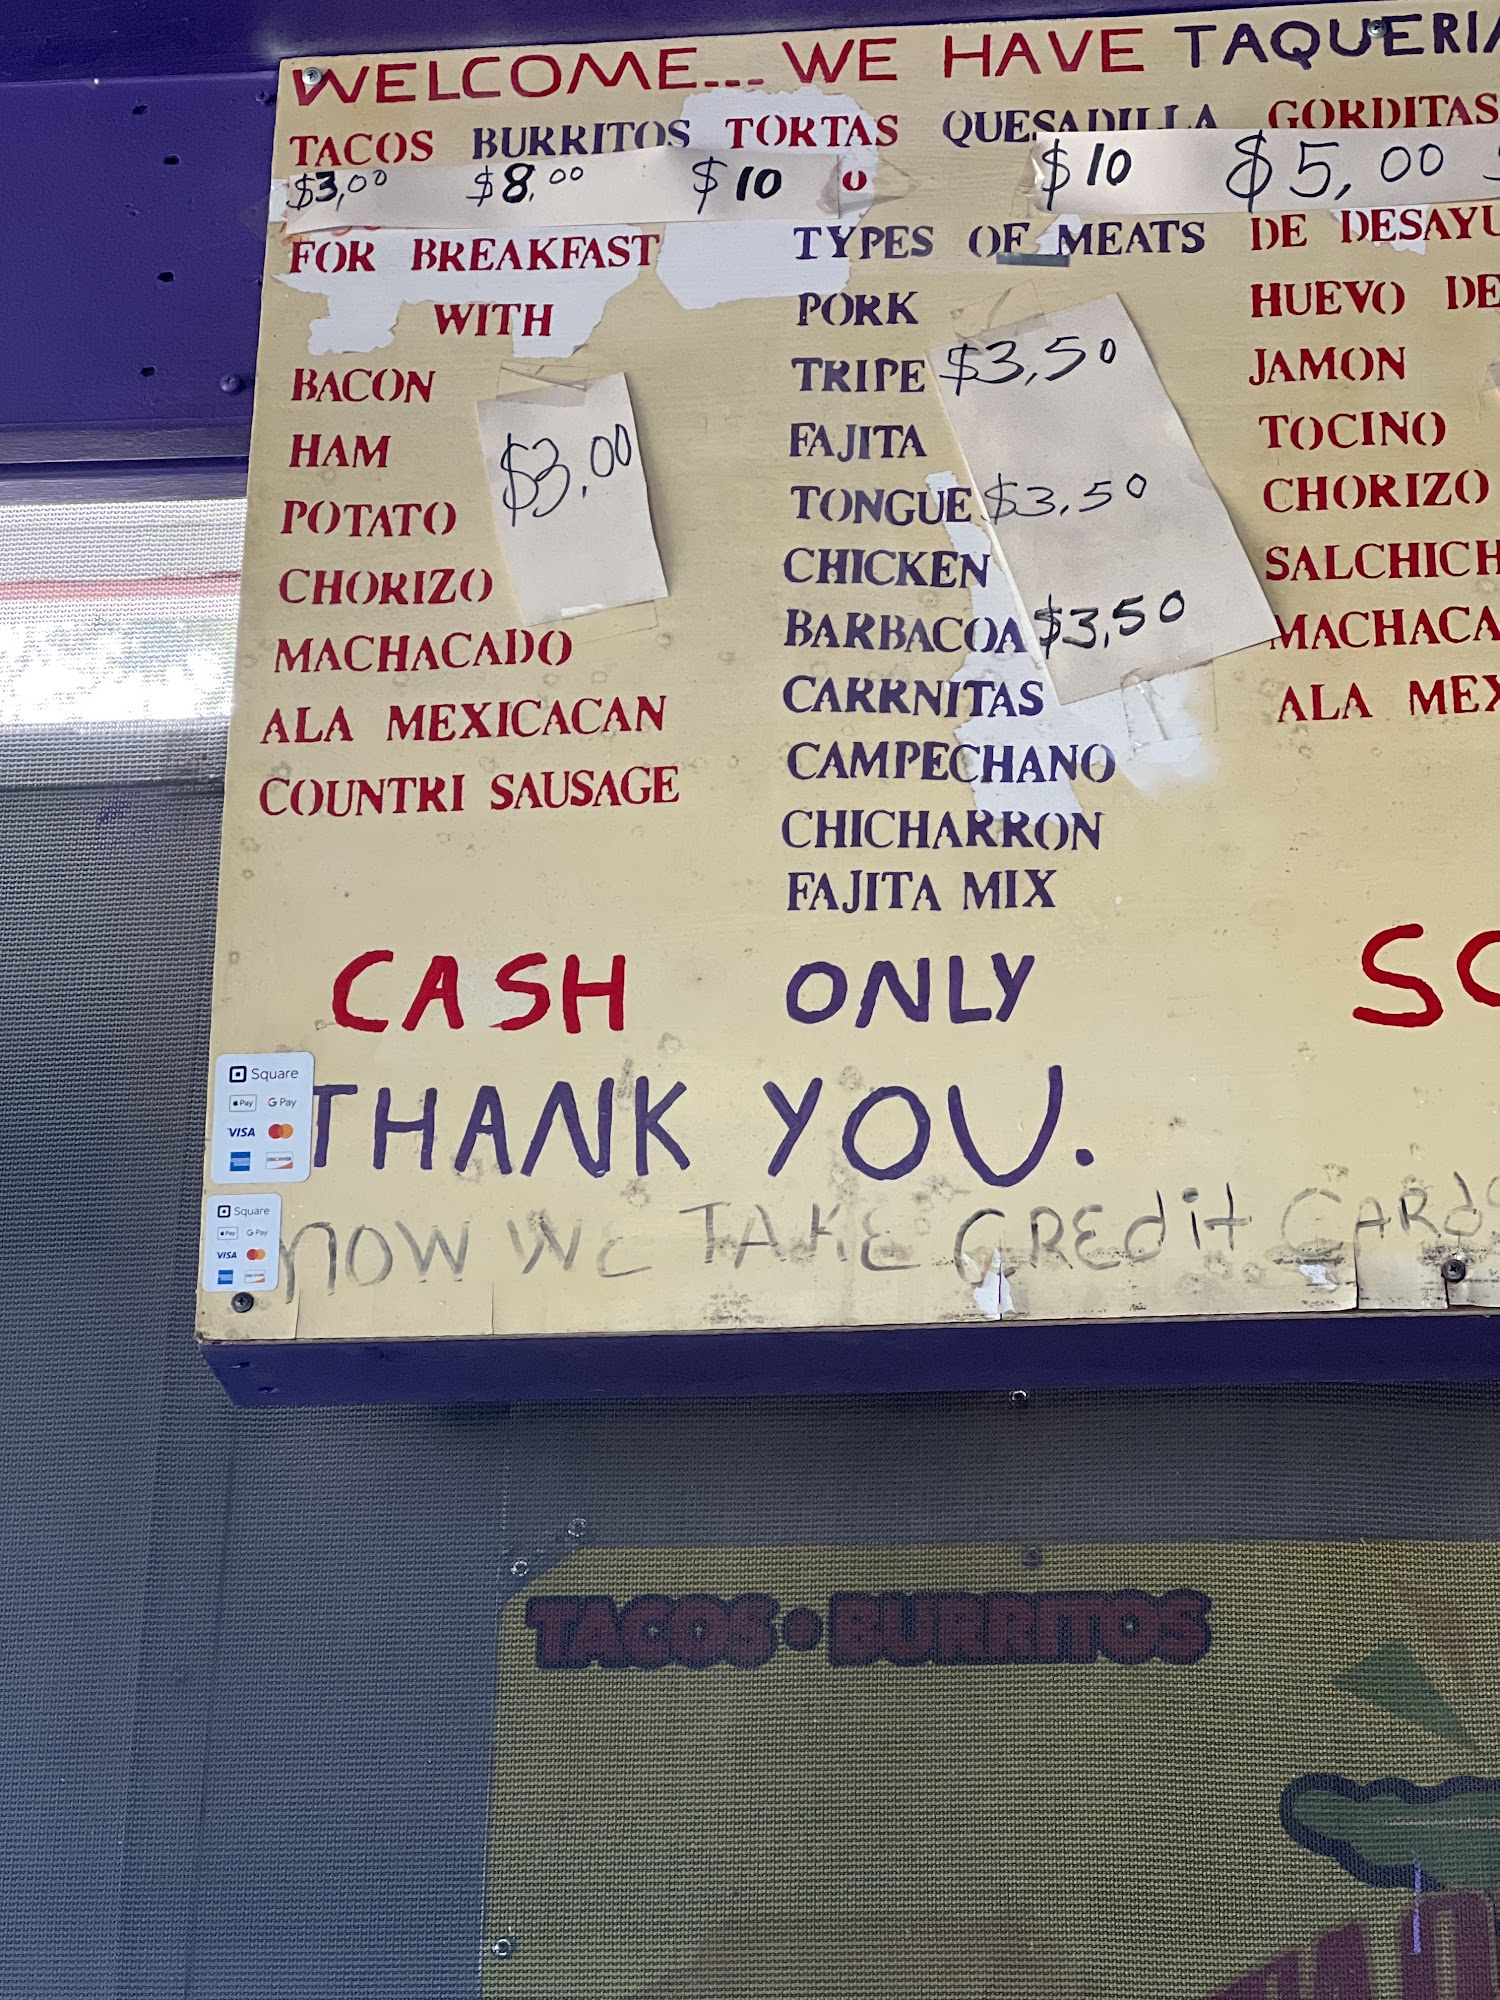 WELCOME... WE HAVE TAQUERIA
TACOS BURRITOS TORTAS QUESADILLA GORDITAS
$3,00 $8,00 $10 $10 $5,00
FOR BREAKFAST
WITH
BACON
HAM
POTATO
CHORIZO
MACHACADO
ALA MEXICACAN
COUNTRI SAUSAGE
$3,00
TYPES OF MEATS
PORK
TRIPE $3,50
FAJITA
TONGUE $3,50
CHICKEN
BARBACOA $3,50
CARRNITAS
CAMPECHANO
CHICHARRON
FAJITA MIX
DE DESAYU
HUEVO DE
JAMON
TOCINO
CHORIZO
SALCHICH
MACHACA
ALA MEX
CASH ONLY SO
THANK YOU.
NOW We TAKE CREdit CARds
Square
Pay G Pay
VISA
DISCOVER
Square
Pay G Pay
VISA
TACOS • BURRITOS